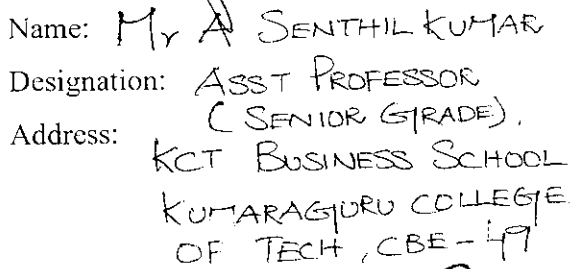 Name: Mr A SENTHIL KUMAR
Designation: ASST PROFESSOR
(SENIOR GRADE).
Address:
KCT BUSINESS SCHOOL
KUMARAGURU COLLEGE
OF TECH, CBE - 49